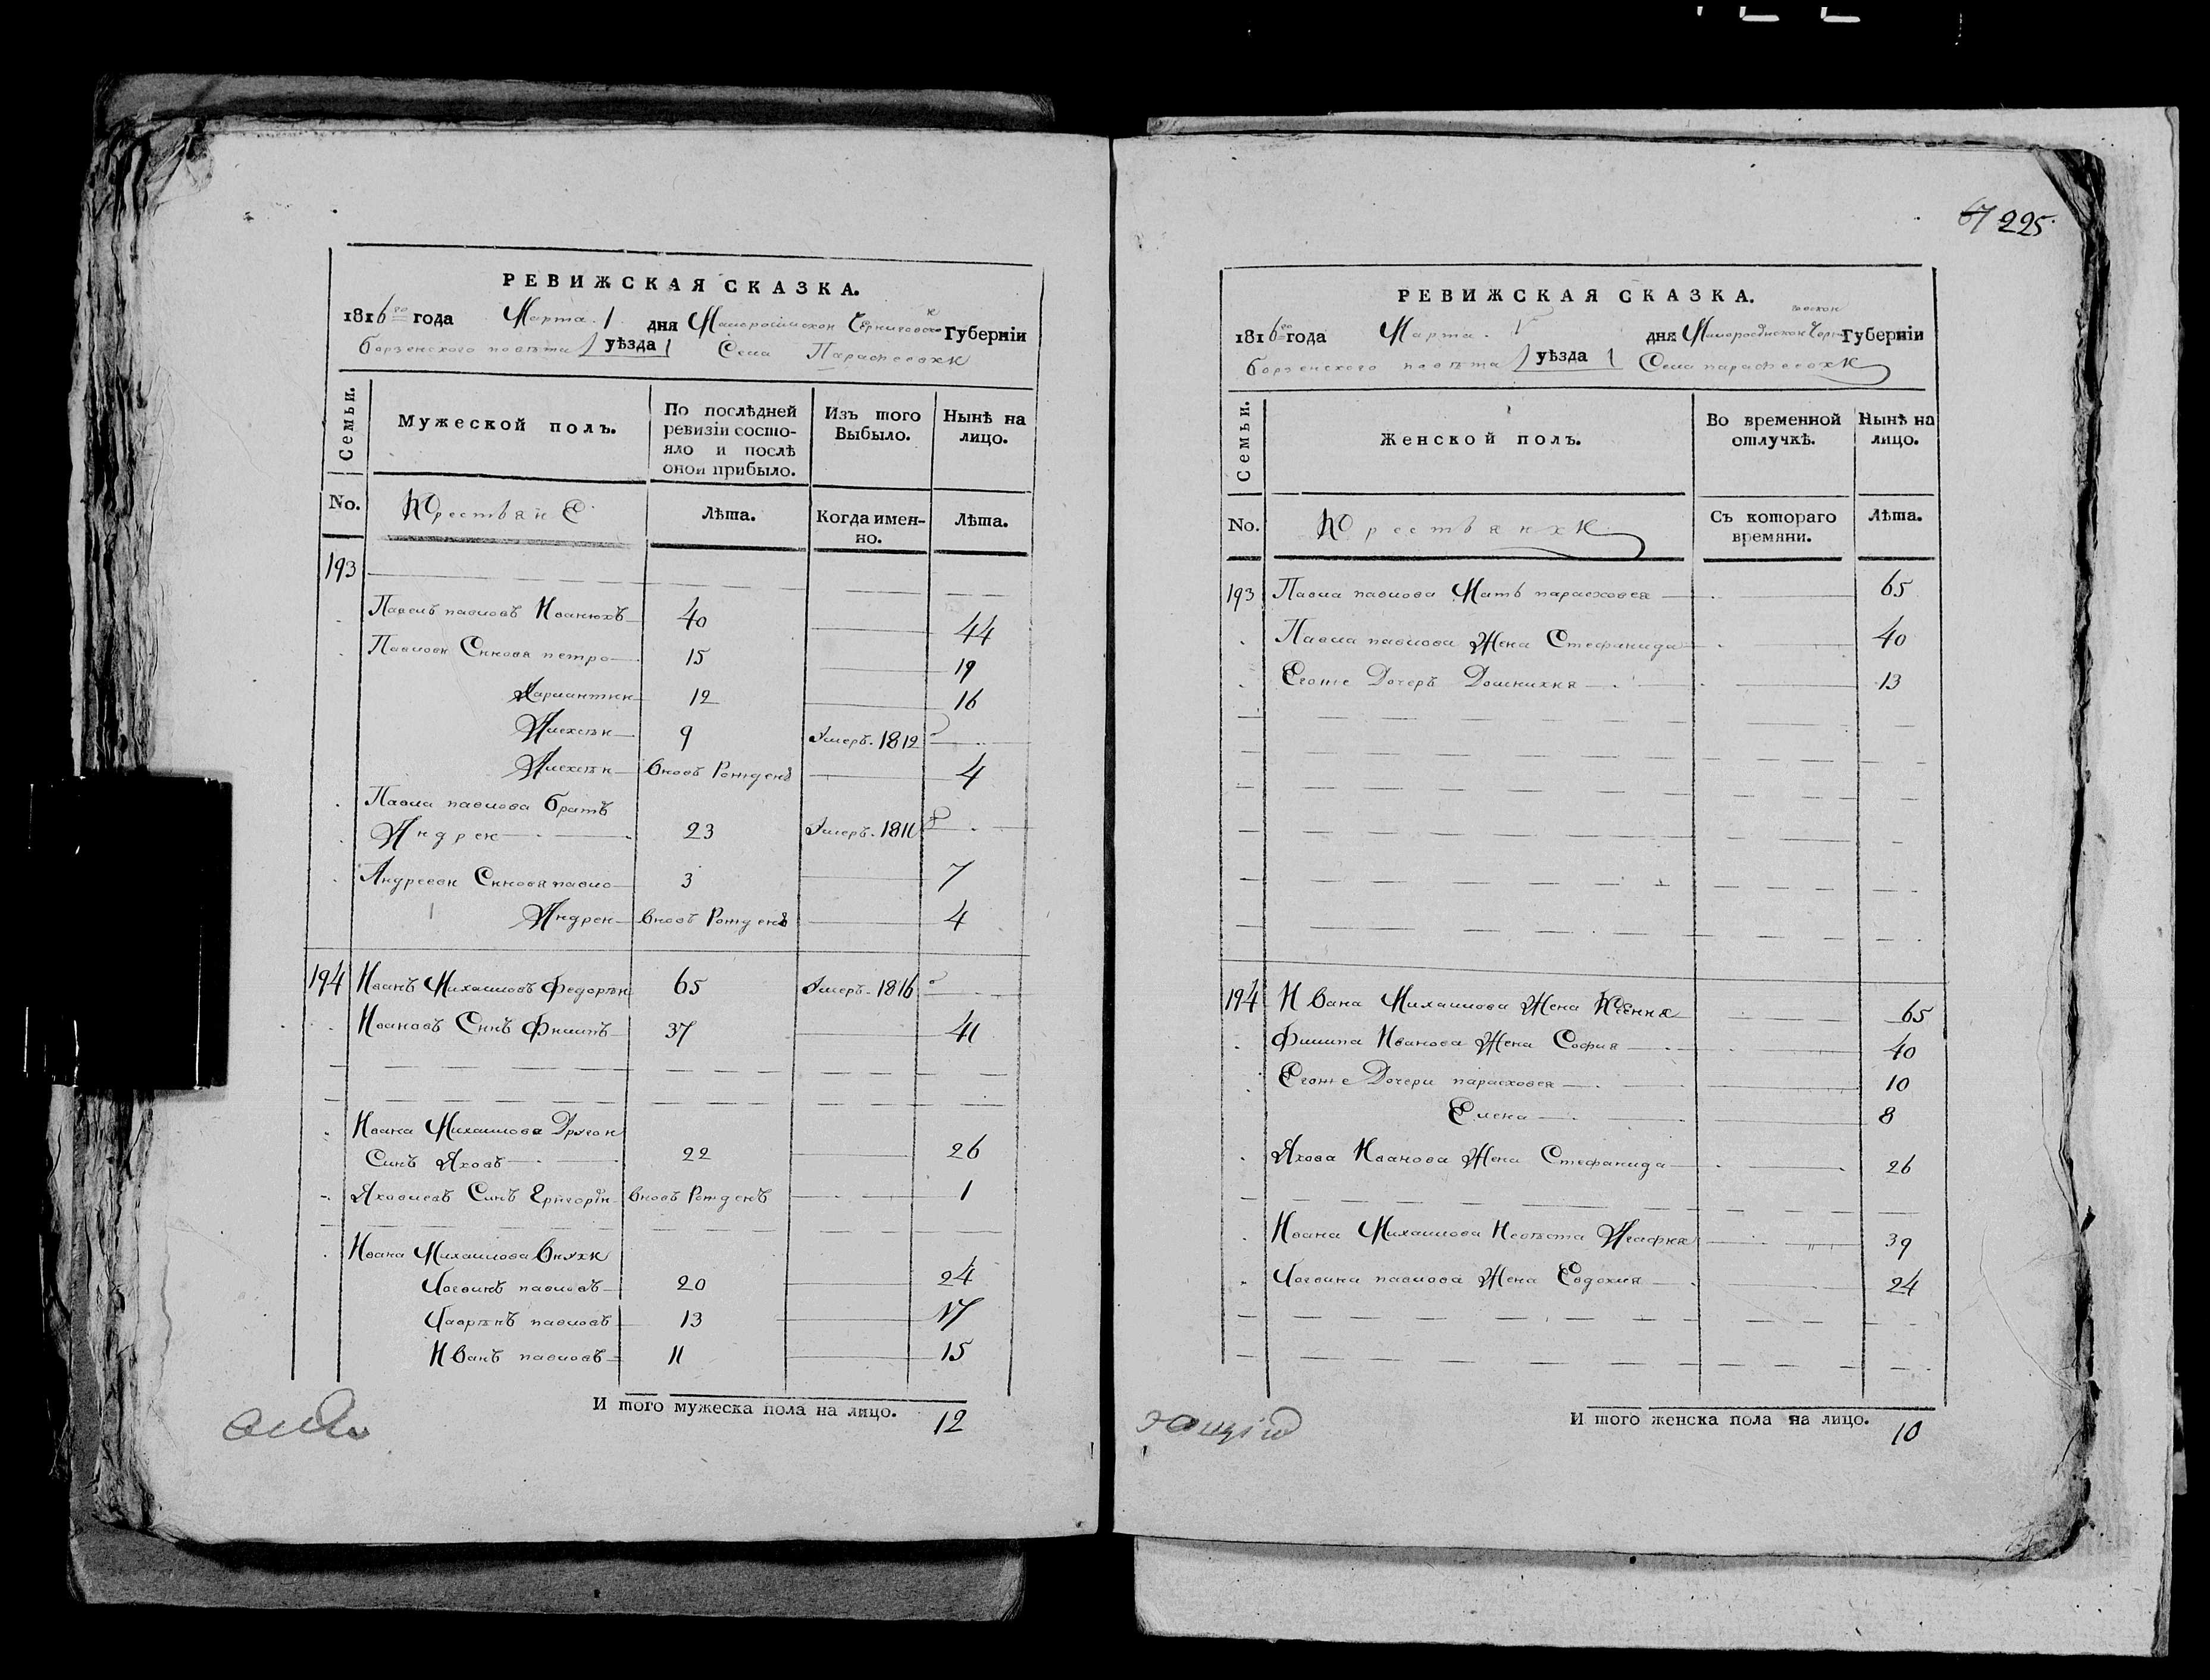 РЕВИЖСКАЯ СКАЗКА.
1816го года Марта 1 дня Малоросiйской Черниговской Губернiи
борзенского повѣта уѣзда Села Парафеевки
Семьи.
Мужеской полъ.
По послѣдней ревизiи состояло и послѣ оной прибыло.
Изъ того Выбыло.
Нынѣ на лицо.
No.
Крестьяне
Лѣта.
Когда именно.
Лѣта.
193
Павелъ павловъ Иванюхъ 40 44
Павловы Сынова петро 15 19
12 16
Алексѣй 9 Умеръ 1812
Алексѣй вновь Рожденъ 4
Павла павлова братъ
Андрей 23 Умеръ 1811
Андреевы Сынова павло 3 7
Андрей вновь Рожденъ 4
194 Иванъ Михаиловъ Федорѣй 65 Умеръ 1816
Ивановъ Сынъ Филипъ 37 41
Ивана Михаилова Другой
Синъ Яковъ 22 26
Яковлевъ Синъ Григорiй вновь Рожденъ 1
Ивана Михаилова внуки
Логвинъ павловъ 20 24
Лаврѣнъ павловъ 13 17
Иванъ павловъ 11 15
И того мужеска пола на лицо. 12
67 225.
РЕВИЖСКАЯ СКАЗКА.
1816го года Марта 1 дня Малоросiйской Черниговской Губернiи
борзенского повѣта уѣзда Села парафеевки
Семьи.
Женской полъ.
Во временной отлучкѣ.
Нынѣ на лицо.
No.
Крестьянки
Съ котораго времяни.
Лѣта.
193 Павла павлова Мать парасковея 65
Павла павлова Жена Стефанида 40
Егоже Дочеръ Домникия 13
194 Ивана Михаилова Жена Ксения 65
Филипа Иванова Жена София 40
Егоже Дочери парасковея 10
Елена 8
Якова Иванова Жена Стефанида 26
Ивана Михаилова Невѣста Агафия 39
Логвина павлова Жена Евдокия 24
И того женска пола на лицо. 10